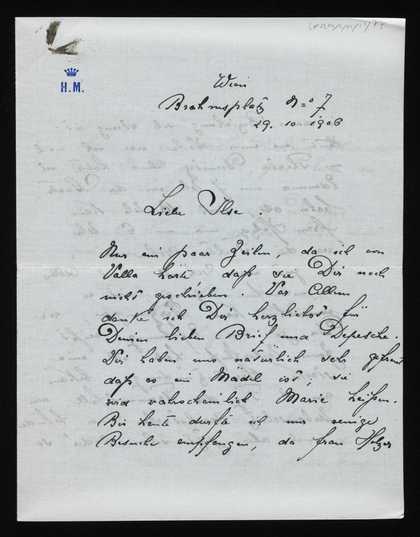 H.M.
Wien
Brahmsplatz No 7
29. 10. 1906
Liebe Ilse.
Nur ein paar Zeilen, da ich von
Valla hörte daß sie Dir noch
nicht geschrieben. Vor Allem
danke ich Dir herzlichst für
Deinen lieben Brief und Depesche.
Wir haben uns natürlich sehr gefreut
daß es ein Mädel ist, sie
wird wahrscheinlich Marie heißen.
Bis heute durfte ich nur wenige
Besuche empfangen, da Frau